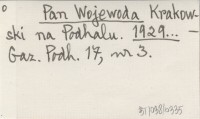 Pan Wojewoda Krakow-
ski na Podhalu. 1929... –
Gaz. Podh. 17, nr 3.